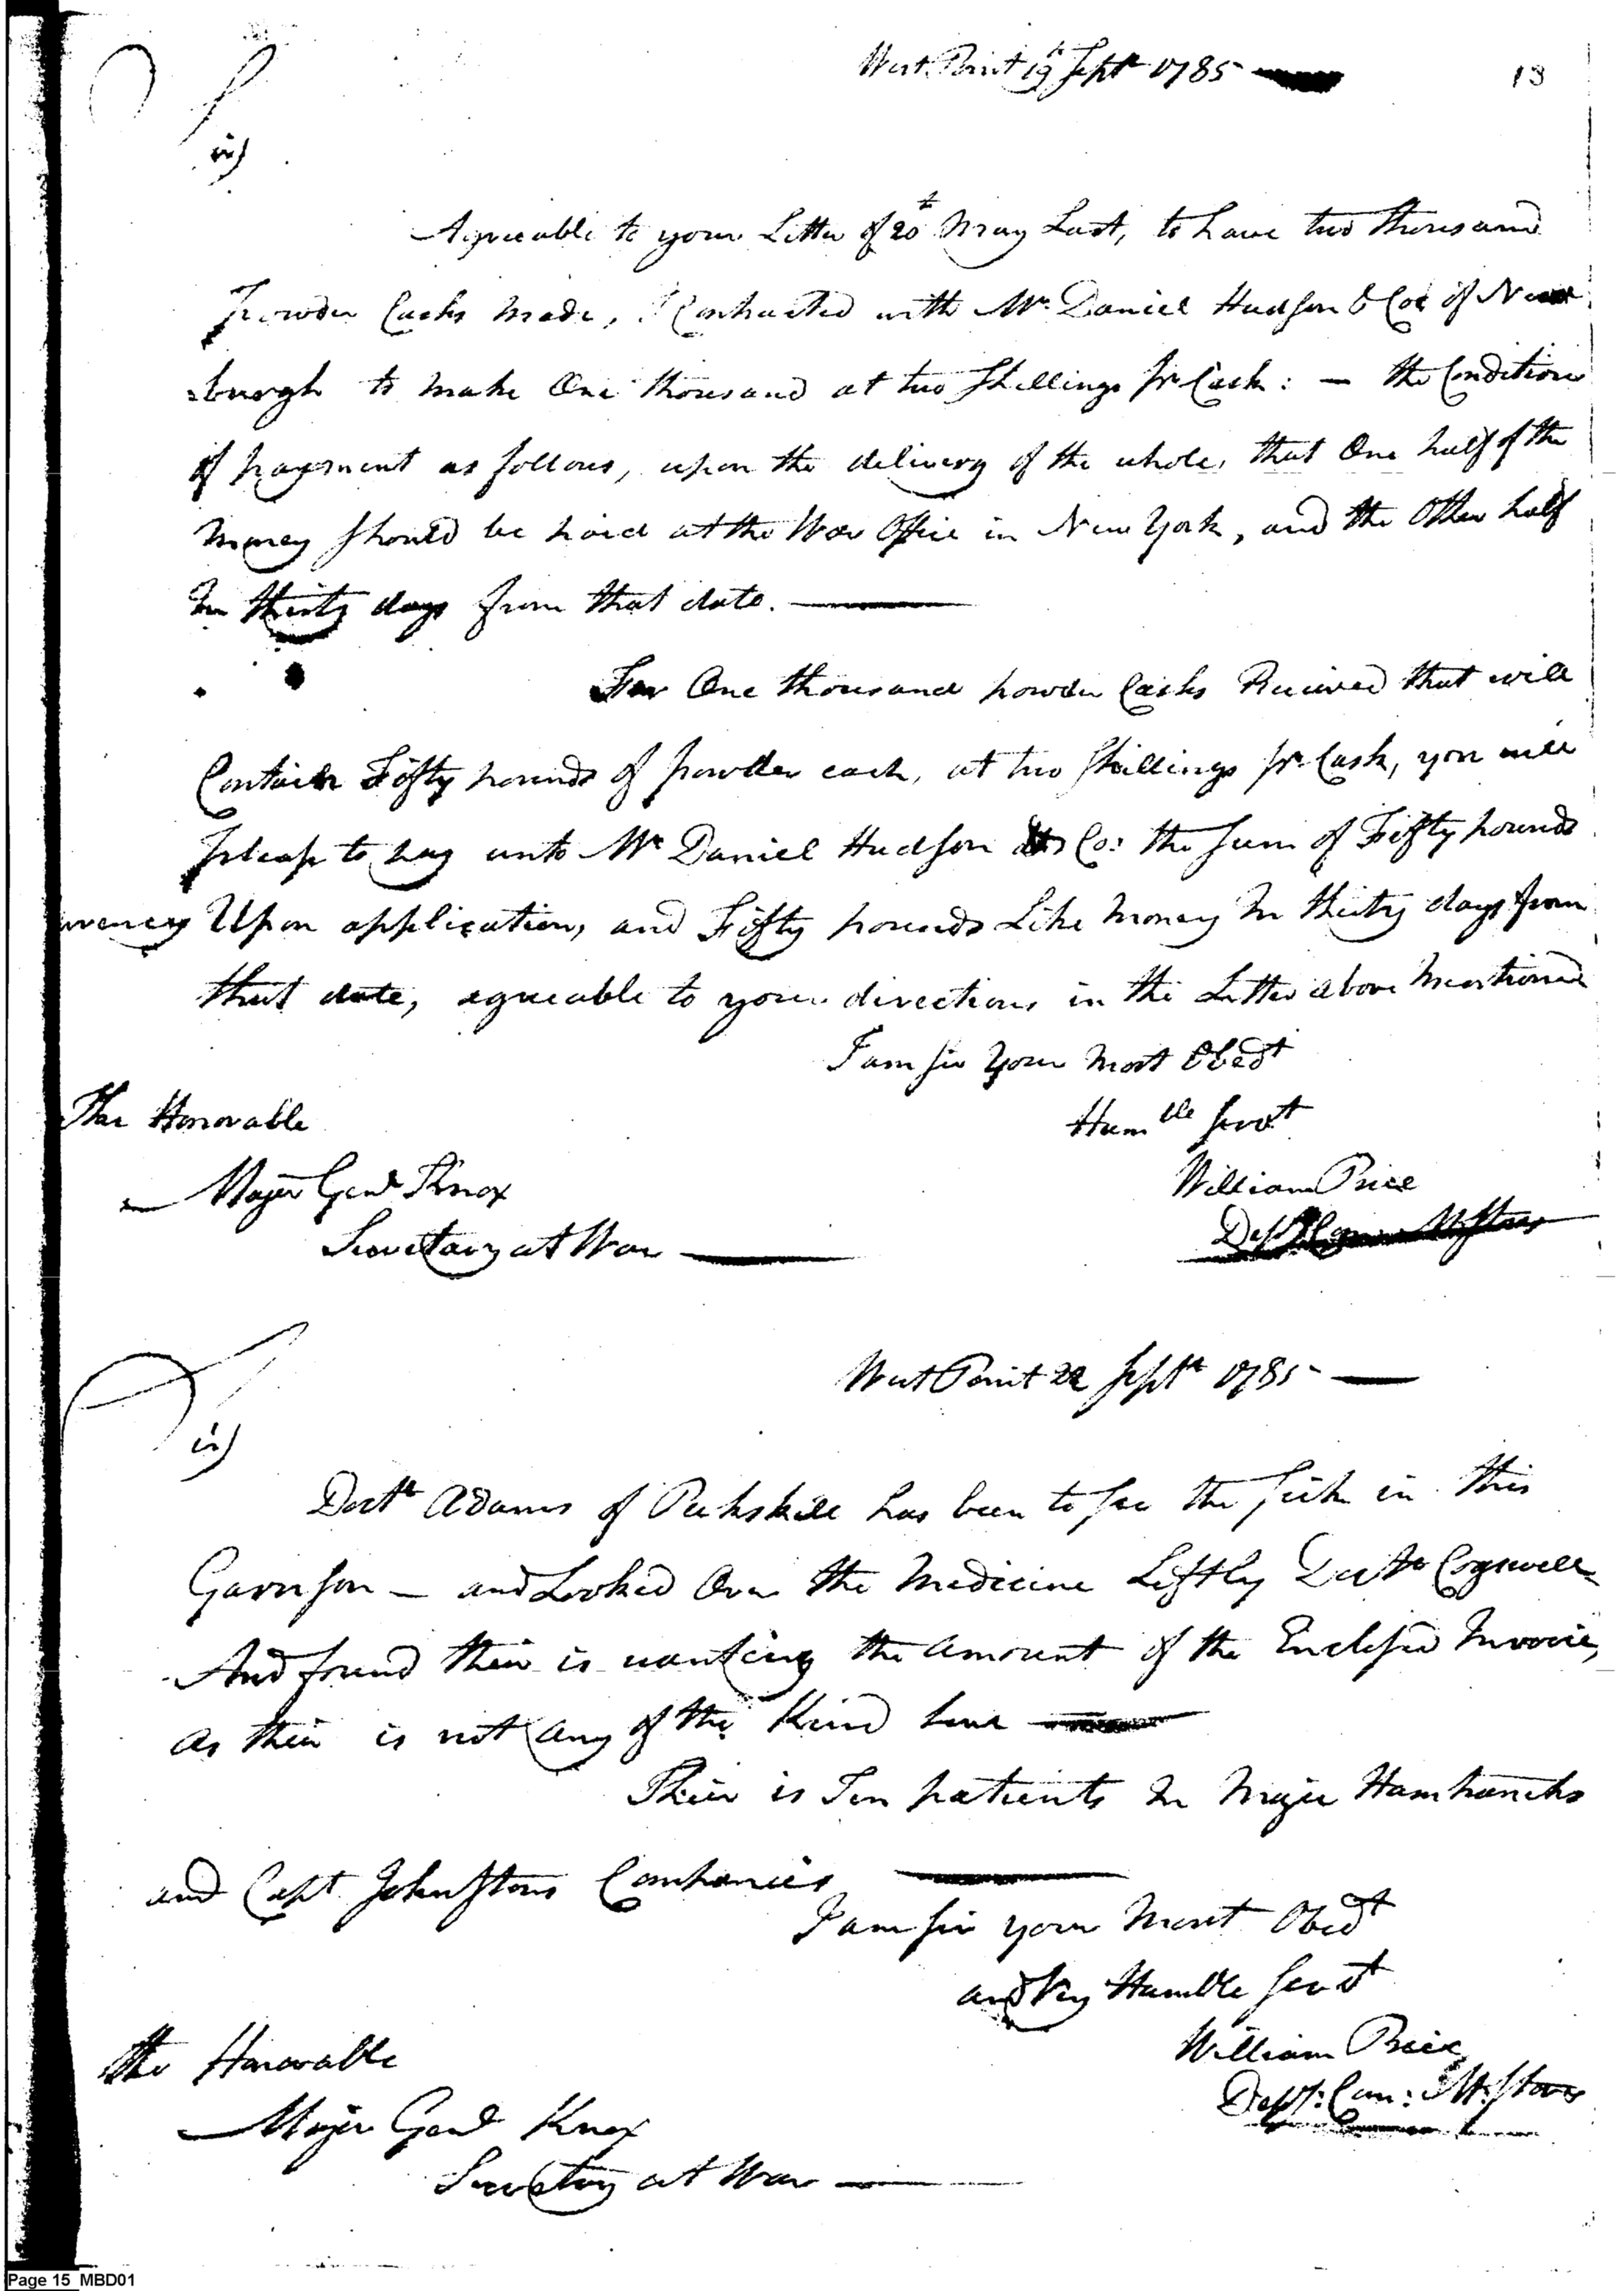 West Point 19th Septr 1785
13
Sir)
Agreeable to your Letter of 20th May Last, to have two thousand
Powder Casks made, I Contracted with Mr Daniel Hudson & Coe of New
=burgh to make One thousand at two Shillings pr Cask: — the Condition
of payment as follows, upon the delivery of the whole, that One half of the
money should be paid at the War Office in New York, and the Other half
In thirty days from that date.
For One thousand powder Casks Received that will
Contain Fifty pounds of powder each, at two Shillings pr Cask, you will
Please to pay unto Mr Daniel Hudson & Co: the sum of Fifty pounds
Upon application, and Fifty pounds Like Money In thirty days from
that date, agreeable to your directions in the Letter above Mentioned
I am sir Your Most Obedt
Humble servt
The Honorable
William Price
Major Genl Knox
Secretary at War
West Point 22 Septr 1785
Sir)
Doctr Adams of Peekskill has been to see the sick in this
Garrison — and Looked Over the Medicine Left by Doctr Cogswell
And found their is wanting the amount of the Enclosed Invoice,
as their is not any of the Kind here
Their is Ten patients In Major Hamtramcks
and Capt Johnstons Companies
I am sir your Most Obedt
and Very Humble servt
William Price
the Honorable
Depy: Com: M Stores
Major Genl Knox
Secretary at War
Page 15 MBD01